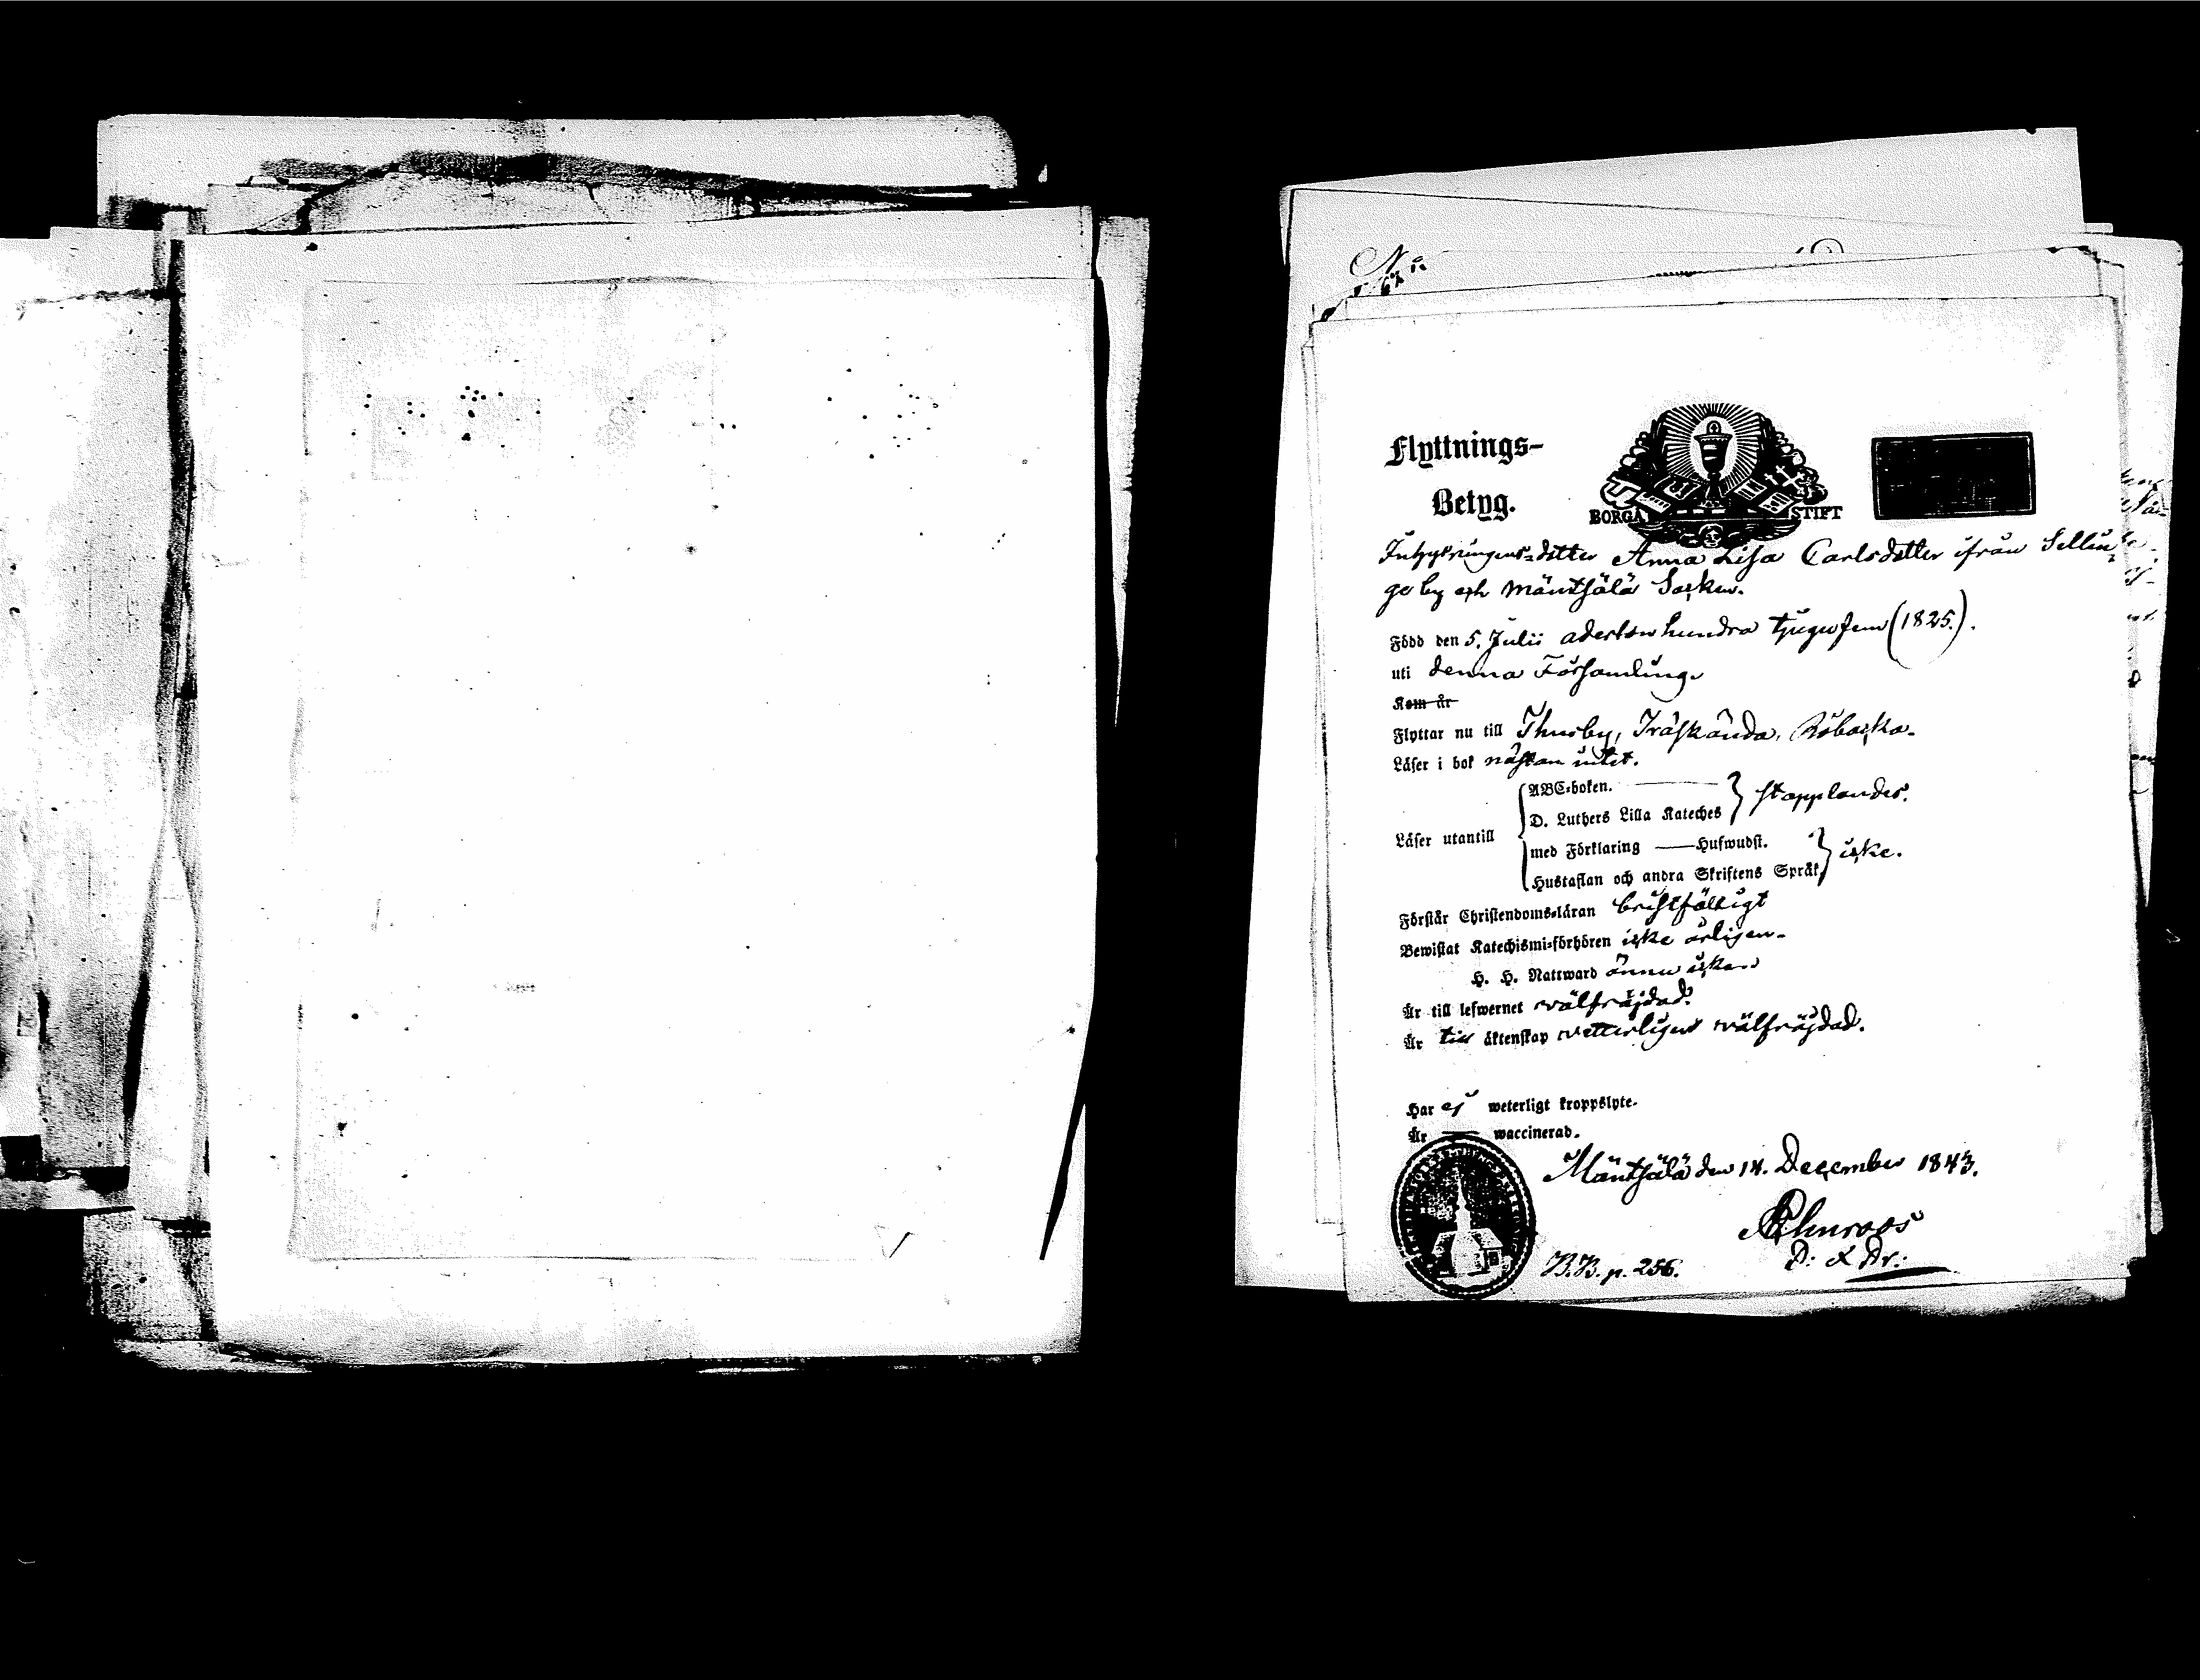 Flyttnings-
Betyg.
BORGÅ STIFT
Inhysingens-dotter Anna Lisa Carlsdotter ifrån Sellin-
ge by och Mäntsälä Socken.
Född den 5. Julii adertonhundra tjugufem (1825.).
uti denna Församling.
Kom år
Flyttar nu till Thusby, Träskända, Röbacka.
Läser i bok nästan intet.
Läser utantill
ABC-boken.
D. Luthers Lilla Kateches } stapplandes.
med Förklaring — Hufwudst.
Hustaflan och andra Skriftens Språk } icke.
Förstår Christendoms-läran bristfälligt
Bewistat Katechismi-förhören icke årligen.
H. H. Nattward ännu icke.
Är till lefwernet wälfräjdad.
Är till äktenskap wetterligen wälfräjdad.
Har ej weterligt kroppslyte.
Är — waccinerad.
Mäntsälä den 14. December 1843.
D: & Dr:
B.B. p. 256.